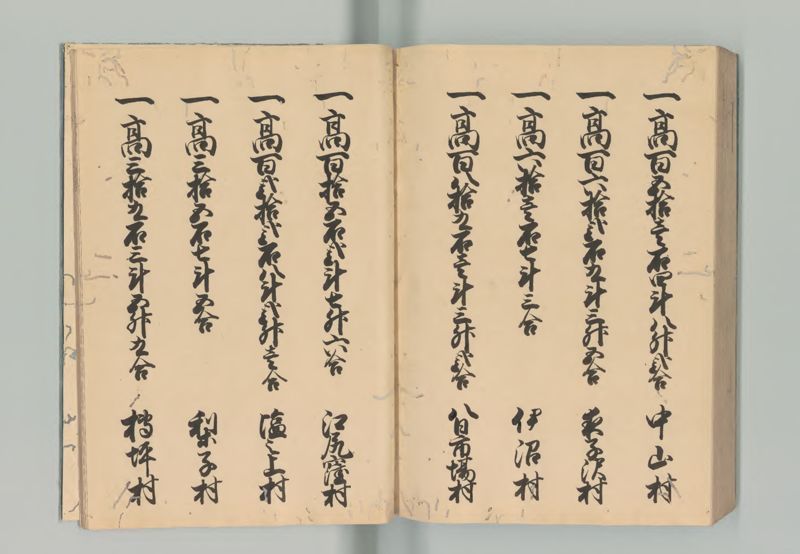 一高百五拾壱石四斗八升弐合 中山村
一高百六拾弐石九斗三升五合
一高六拾壱石七斗三合 伊沼村
一高百八拾九石壱斗三升弐合 八日市場村
一高百拾五石弐斗七升六合 江尻窪村
一高百弐拾弐石八斗弐升壱合 塩之上村
一高三拾五石七斗五合 梨子村
一高三拾九石三斗五升九合 椿坪村